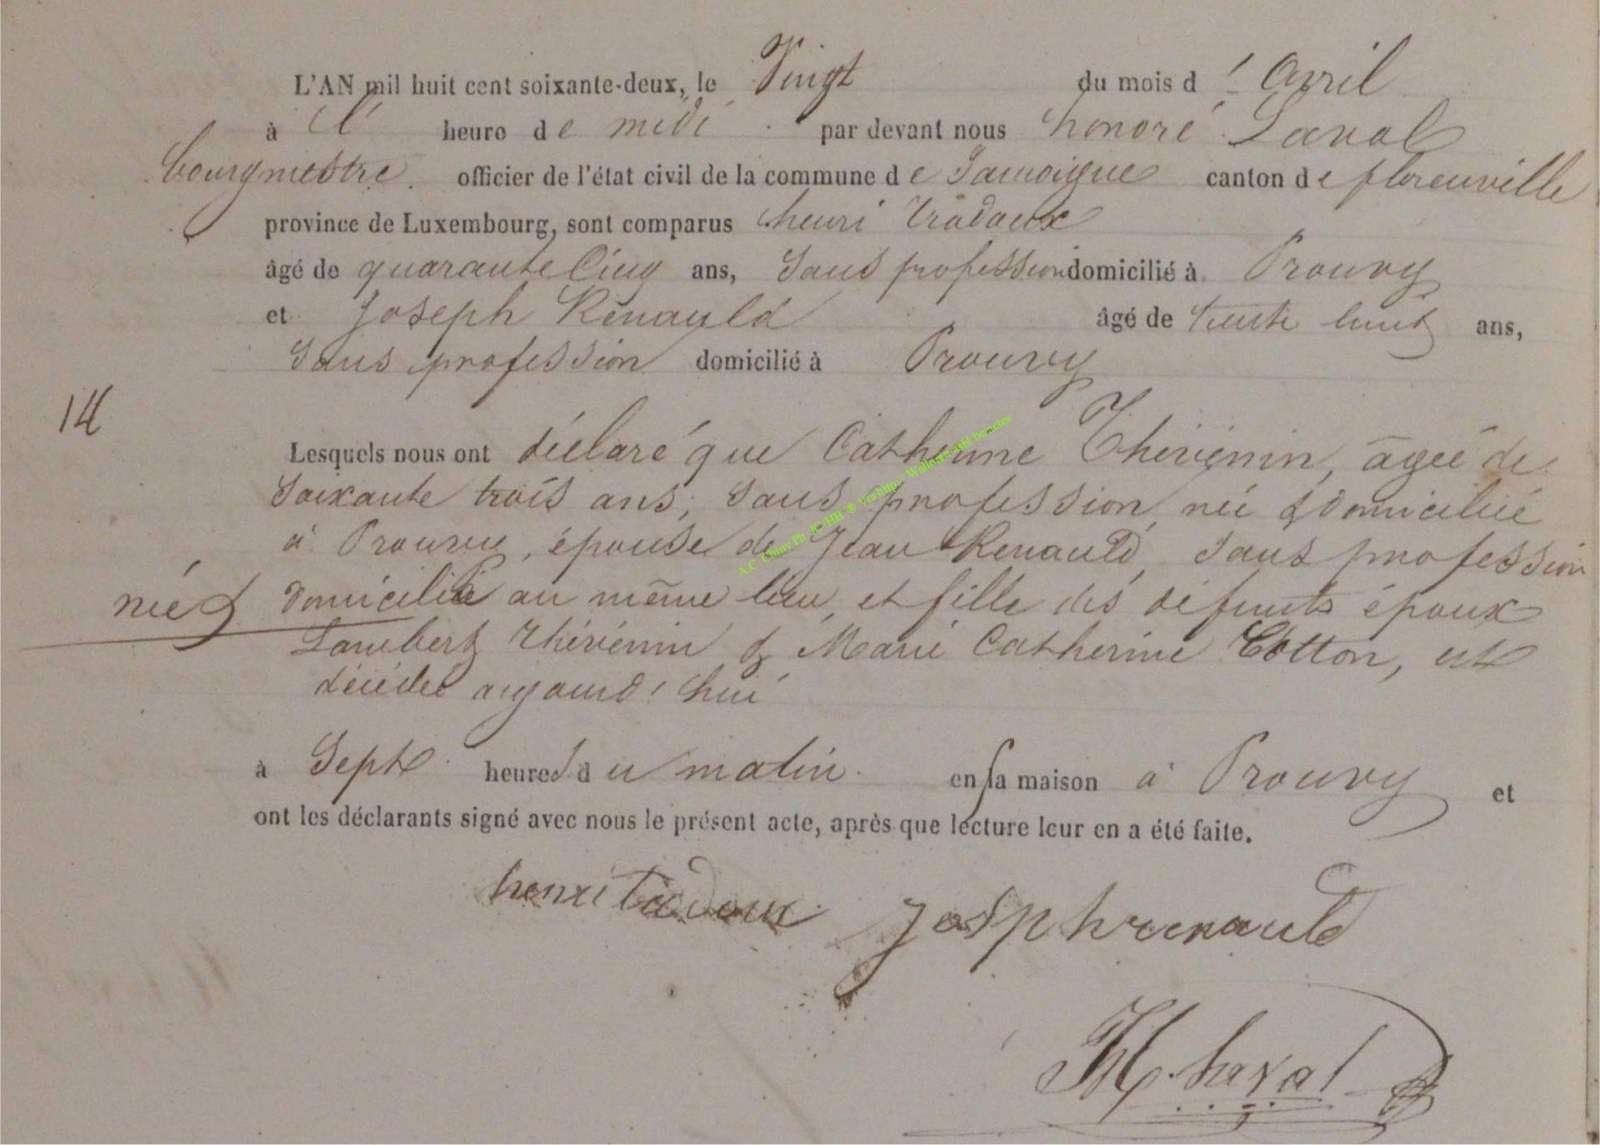 L'AN mil huit cent soixante-deux, le Vingt du mois d'Avril
à l' heure de midi par devant nous honoré Laval
bourgmestre officier de l'état civil de la commune de Jamoigne canton de florenville
province de Luxembourg, sont comparus henri
âgé de quarante Cinq ans, Sans profession domicilié à Prouvy
et Joseph Renauld âgé de trente huit ans,
Sans profession domicilié à Prouvy
14
Lesquels nous ont déclaré que Catherine Thévenin, âgée de
Soixante trois ans, Sans profession, née & domiciliée
à Prouvy, épouse de Jean Renauld, Sans profession
née & domicilié au même lieu, et fille des défunts époux
Lambert Thévenin & Marie Catherine Cotton, est
décédée aujourd'hui
à Sept heures du matin en sa maison à Prouvy et
ont les déclarants signé avec nous le présent acte, après que lecture leur en a été faite.
henri Josph renauld
H. Laval